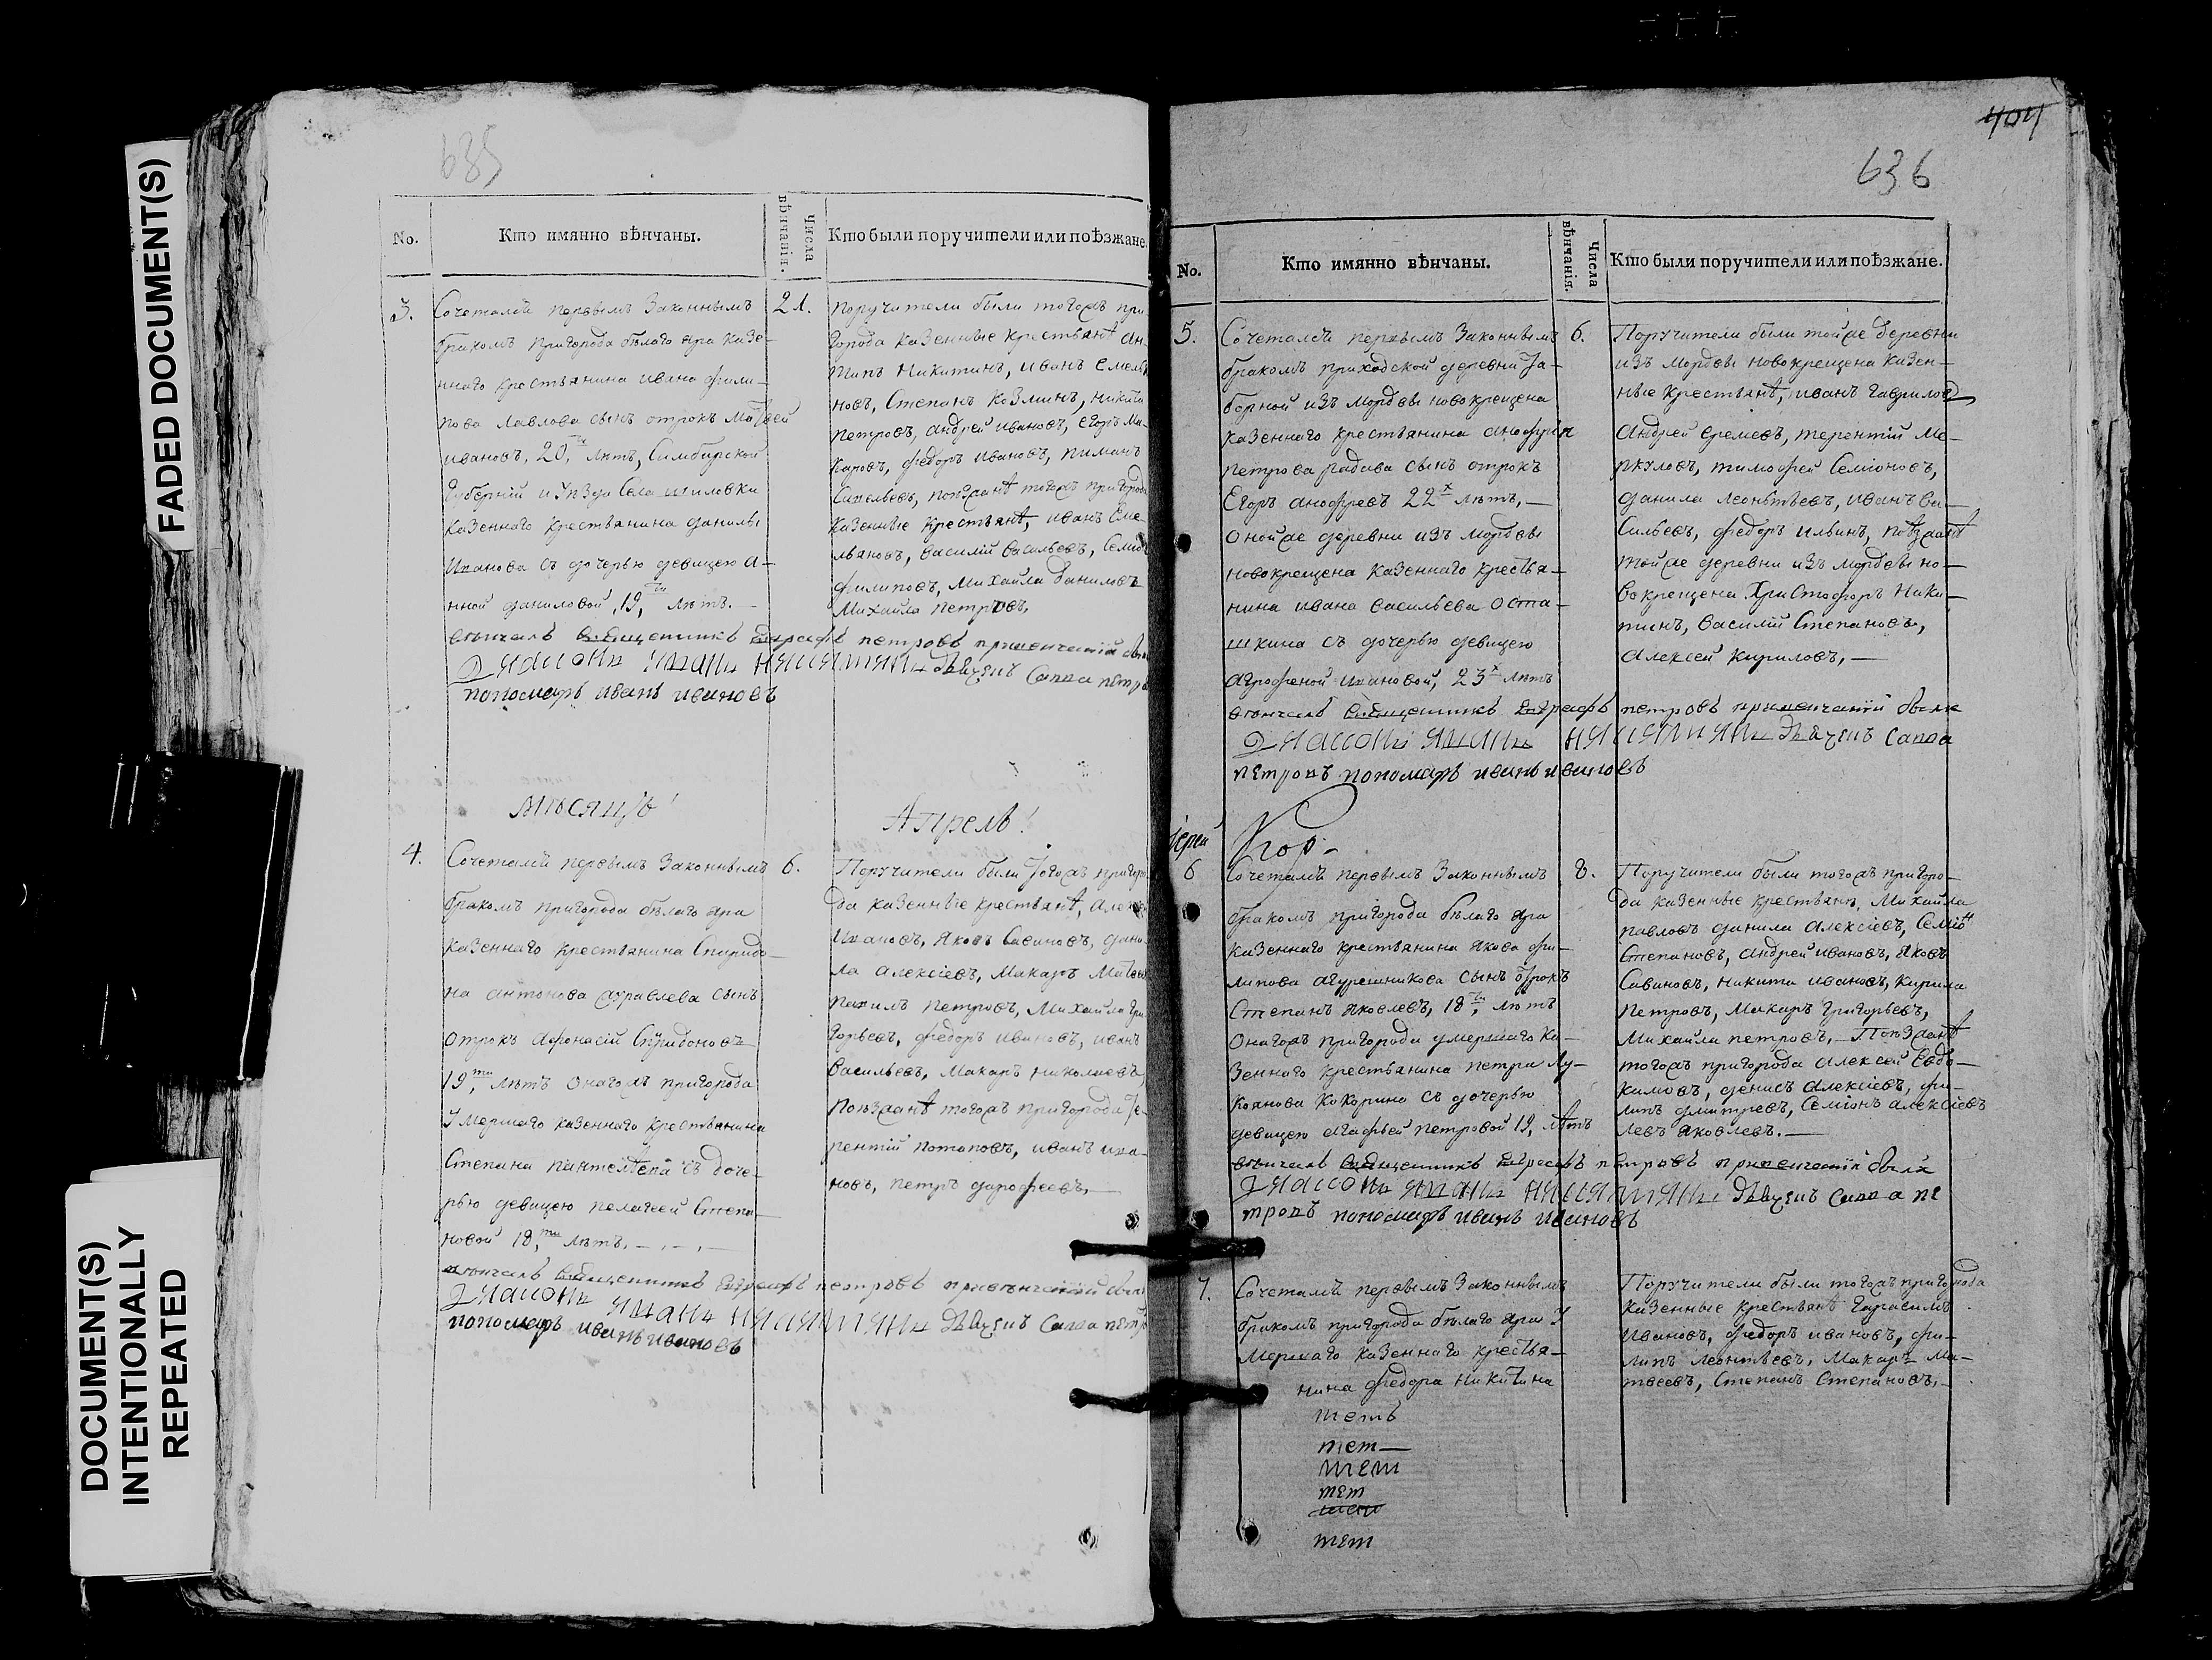 FADED DOCUMENT(S)
DOCUMENT(S)
INTENTIONALLY
REPEATED
635
No.
Кто имянно вѣнчаны.
Числа
вѣнчанія.
Кто были поручители или поѣзжане.
3.
Сочетался первымъ Законнымъ
бракомъ пригорода бѣлаго яра казе-
ннаго крестьянина ивана фили-
пова Павлова сынъ отрокъ матвей
ивановъ, 20, ти лѣтъ, Симбирской
Губерніи и уѣзда Села шиловки
казеннаго крестьянина данилы
Иванова съ дочерью девицею а-
нной даниловой, 19, ти лѣтъ.
21.
Поручители были тогожъ при
города казенные крестьянѣ ан
типъ Никитинъ, иванъ Емель
новъ, Степанъ козминъ, никита
петровъ, андрей ивановъ, егоръ ма-
каровъ, федоръ ивановъ, пиманъ
Савельевъ, поѣзжанѣ тогожъ пригорода
казенные крестьянѣ, иванъ Еме-
льяновъ, василий васильевъ, Семіо
филиповъ, михайла даниловъ
михайла петровъ,
вѣнчалъ священникъ евграфъ петровъ при венчаній были
дьячекъ Савва петр
пономарь иванъ ивановъ
мѣсяцъ
Апрель
4.
Сочетался первымъ Законнымъ
бракомъ пригорода бѣлаго яра
казеннаго крестьянина Спиридо-
на антонова журавлева сынъ
отрокъ афонасій Спиридоновъ
19, ти лѣтъ онагожъ пригорода
умершаго казеннаго крестьянина
Степана пантелѣева съ доче-
рью девицею пелагеей Степа-
новой 18, ти лѣтъ.
6.
Поручители были тогожъ пригоро
да казенные крестьянѣ, алек
Ивановъ, яковъ Савиновъ, дани
ла алексіевъ, макаръ матвеев
пахимъ петровъ, михайла гри
горьевъ, федоръ ивановъ, иванъ
васильевъ, макаръ николаевъ,
поѣзжанѣ тогожъ пригорода те-
рентій потаповъ, иванъ ива-
новъ, петръ дарофеевъ,
вѣнчалъ священникъ евграфъ петровъ при вѣнчаній были
дьячекъ Савва петр
пономарь иванъ ивановъ
404
636
No.
Кто имянно вѣнчаны.
Числа
вѣнчанія.
Кто были поручители или поѣзжане.
5.
Сочетался первымъ Законнымъ
бракомъ приходской деревни За-
борной изъ мордвы новокрещена
казеннаго крестьянина анофрея
петрова радаева сынъ отрокъ
Егоръ анофревъ 22 х лѣтъ,
онойже деревни изъ мордвы
новокрещена казеннаго крестья-
нина ивана васильева оста-
шкина съ дочерью девицею
аграфеной ивановой, 23 х лѣтъ
6.
Поручители были тойже деревни
изъ мордвы новокрещена казен-
ные крестьянѣ, иванъ гавриловъ
андрей еремеевъ, терентій ме-
ркуловъ, тимофей Семіоновъ,
данила леонтьевъ, иванъ ва-
сильевъ, федоръ ильинъ, поѣзжанѣ
тойже деревни изъ мордвы но-
вокрещена Христофоръ Ники-
тинъ, василій Степановъ,
алексей кириловъ,
вѣнчалъ священникъ евграфъ петровъ при венчаній были
дьячекъ Савва
петровъ пономарь иванъ ивановъ
Іерей
6
Сочетался первымъ Законнымъ
бракомъ пригорода бѣлаго яра
казеннаго крестьянина якова фи-
липова агурешникова сынъ отрокъ
Степанъ яковлевъ, 18, ти лѣтъ
онагожъ пригорода умершаго ка-
зеннаго крестьянина петра лу-
коянова кокорина съ дочерью
девицею агафьей петровой 19, лѣтъ
8.
Поручители были тогожъ пригоро-
да казенные крестьянѣ, михайла
павловъ данила алексіевъ, Семіонъ
Степановъ, андрей ивановъ, яковъ
Савиновъ, никита ивановъ, кирила
петровъ, макаръ григорьевъ,
михайла петровъ, поѣзжанѣ
тогожъ пригорода алексей евдо-
кимовъ, денисъ алексіевъ, фи-
липъ дмитревъ, Семіонъ алексіевъ
левъ яковлевъ.
вѣнчалъ священникъ евграфъ петровъ при венчаній были
дьячекъ Савва пе
тровъ пономарь иванъ ивановъ
7.
Сочетался первымъ Законнымъ
бракомъ пригорода бѣлаго яра у
мершаго казеннаго крестья-
нина федора никитина
Поручители были тогожъ пригорода
казенные крестьянѣ гарасимъ
Ивановъ, федоръ ивановъ, фи-
липъ леонтьевъ, макаръ ма-
твеевъ, Степанъ Степановъ,